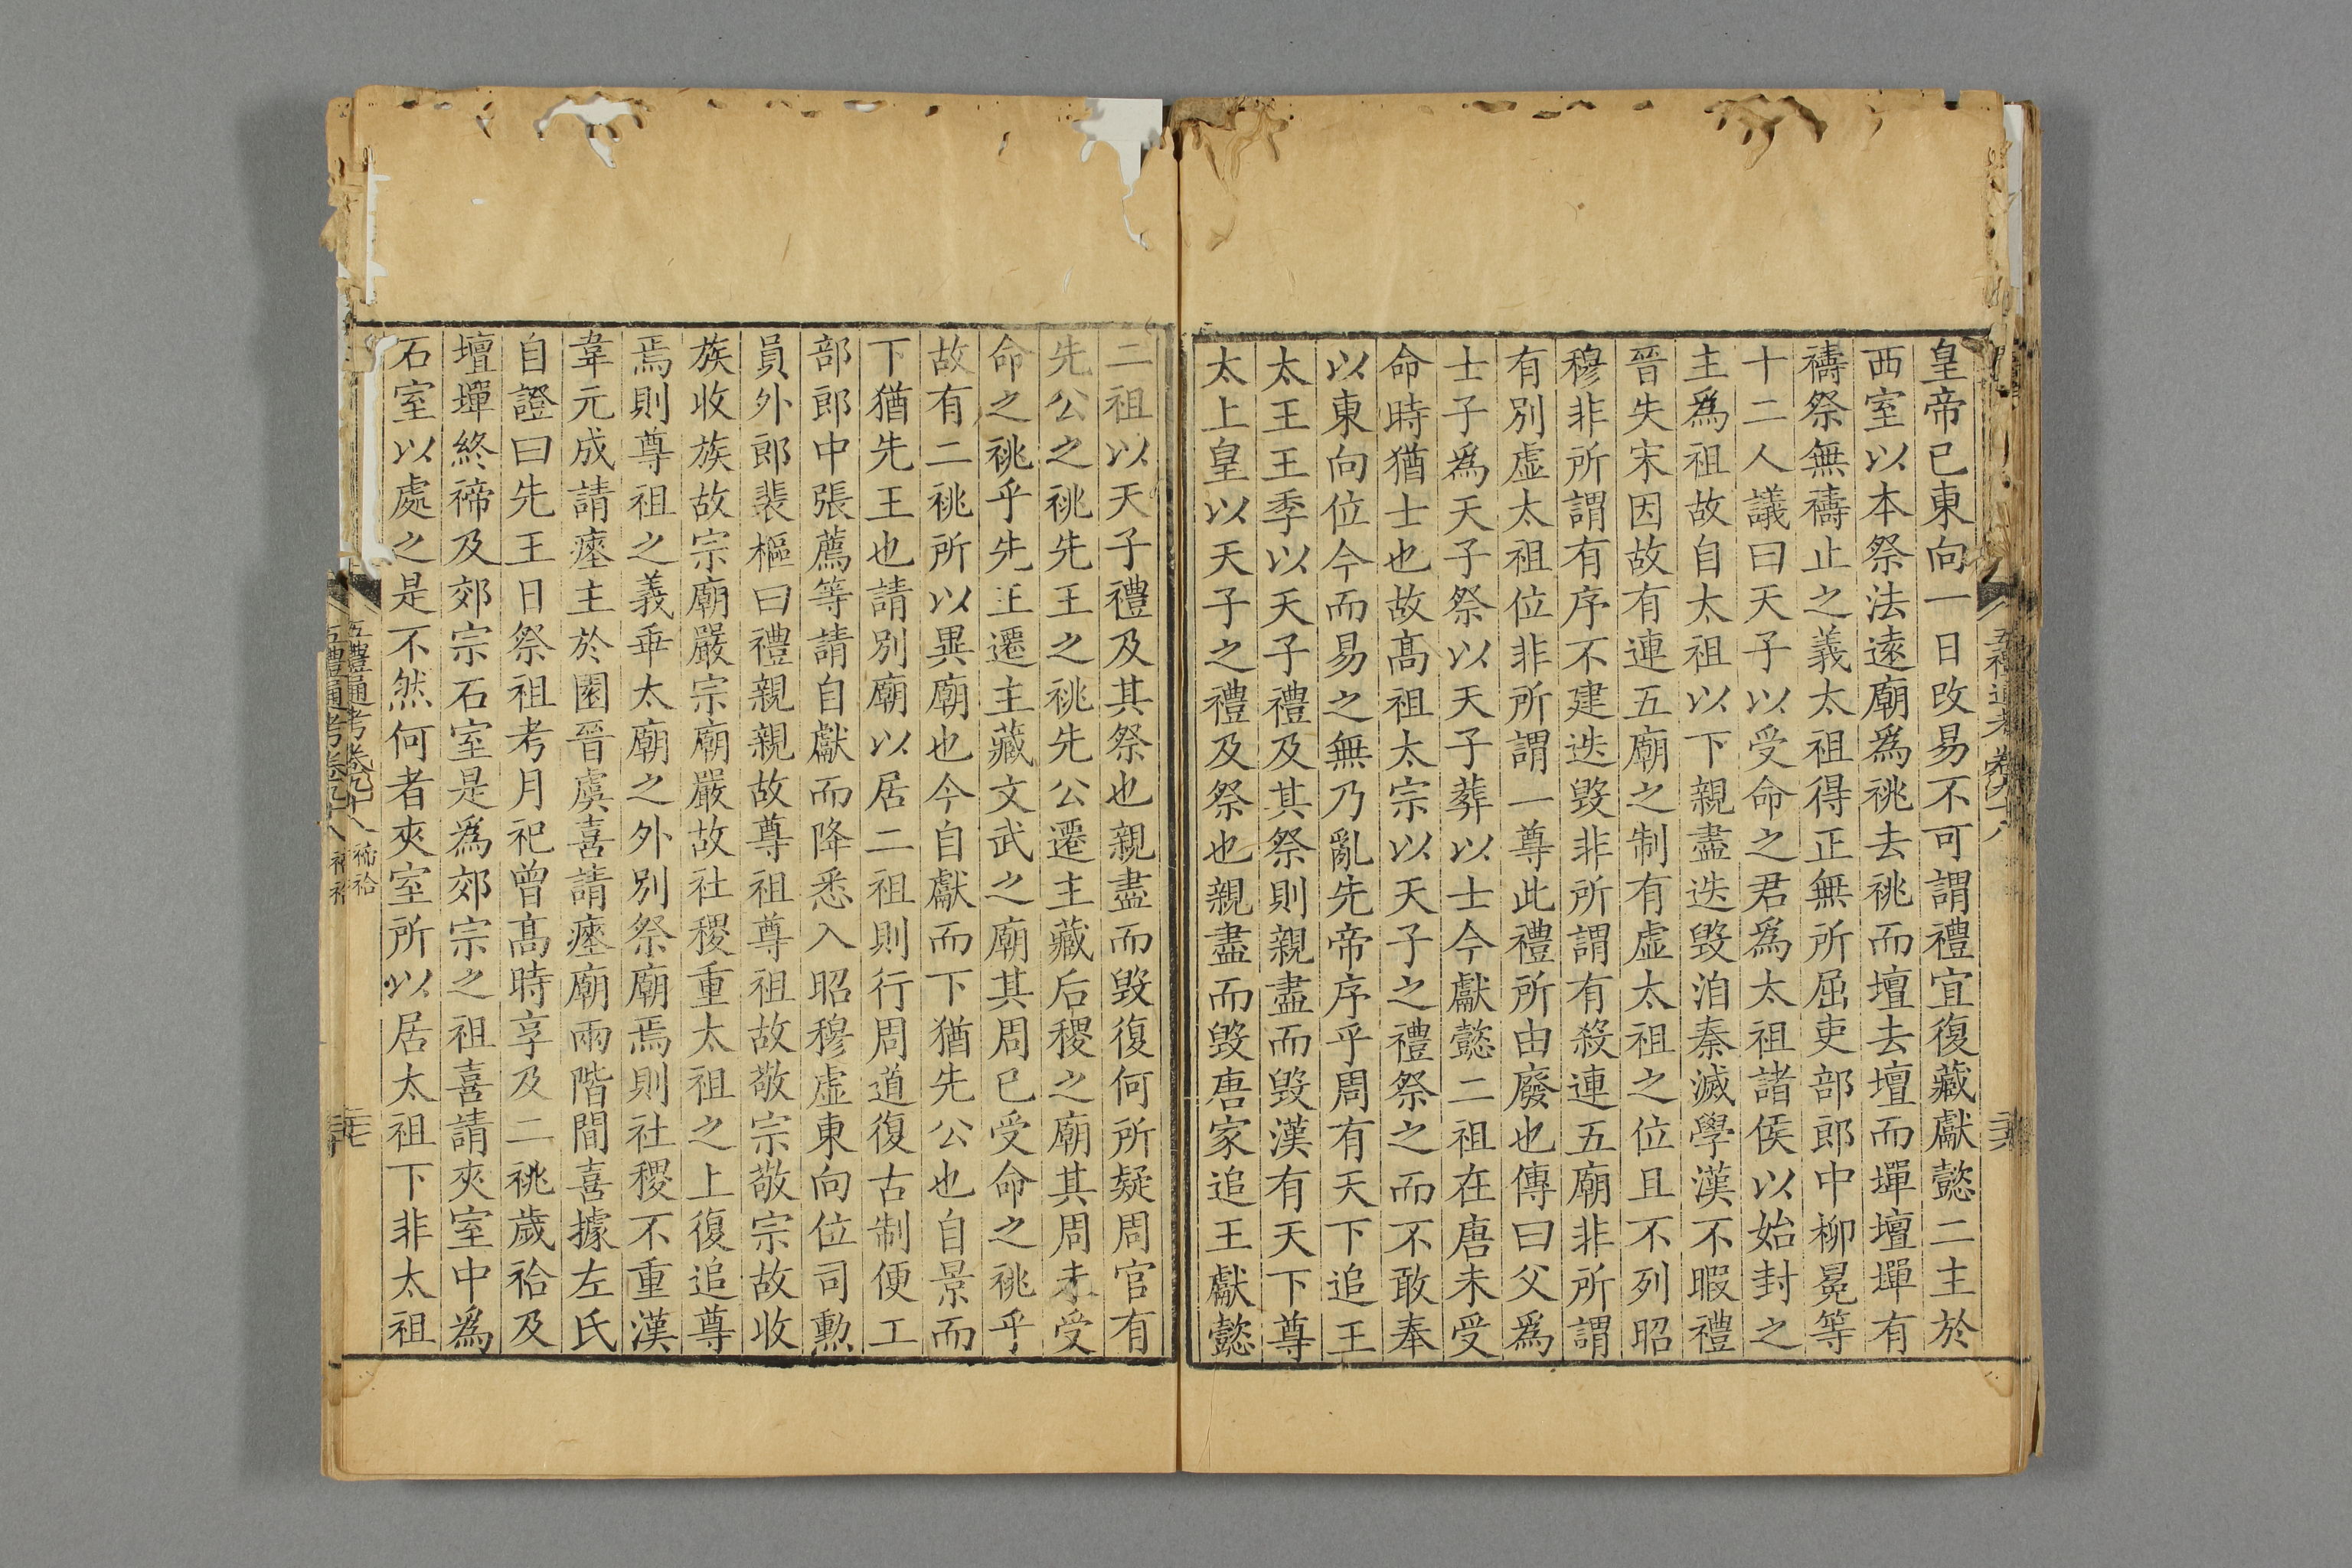 皇帝已東向一日改易不可謂禮宜復藏獻懿二主於
西室以本祭法遠廟爲祧去祧而壇去壇而墠壇墠有
禱祭無禱止之義太祖得正無所屈吏部郎中柳冕等
十二人議曰天子以受命之君爲太祖諸侯以始封之
主爲祖故自太祖以下親盡迭毀洎秦滅學漢不暇禮
晉失宋因故有連五廟之制有虛太祖之位且不列昭
穆非所謂有序不建迭毀非所謂有殺連五廟非所謂
有別虛太祖位非所謂一尊此禮所由廢也傳曰父爲
士子爲天子祭以天子葬以士今獻懿二祖在唐未受
命時猶士也故高祖太宗以天子之禮祭之而不敢奉
以東向位今而易之無乃亂先帝序乎周有天下追王
太王王季以天子禮及其祭則親盡而毀漢有天下尊
太上皇以天子之禮及祭也親盡而毀唐家追王獻懿
二祖以天子禮及其祭也親盡而毀復何所疑周官有
先公之祧先王之祧先公遷主藏后稷之廟其周未受
命之祧乎先王遷主藏文武之廟其周已受命之祧乎
故有二祧所以異廟也今自獻而下猶先公也自景而
下猶先王也請別廟以居二祖則行周道復古制便工
部郎中張薦等請自獻而降悉入昭穆虛東向位司勲
員外郎裴樞曰禮親親故尊祖尊祖故敬宗敬宗故收
族收族故宗廟嚴宗廟嚴故社稷重太祖之上復追尊
焉則尊祖之義乖太廟之外別祭廟焉則社稷不重漢
韋元成請瘞主於園晉虞喜請瘞廟兩階間喜據左氏
自證曰先王日祭祖考月祀曾高時享及二祧歲祫及
壇墠終禘及郊宗石室是爲郊宗之祖喜請夾室中爲
石室以處之是不然何者夾室所以居太祖下非太祖
五禮通考卷九十八 禘祫 二十七